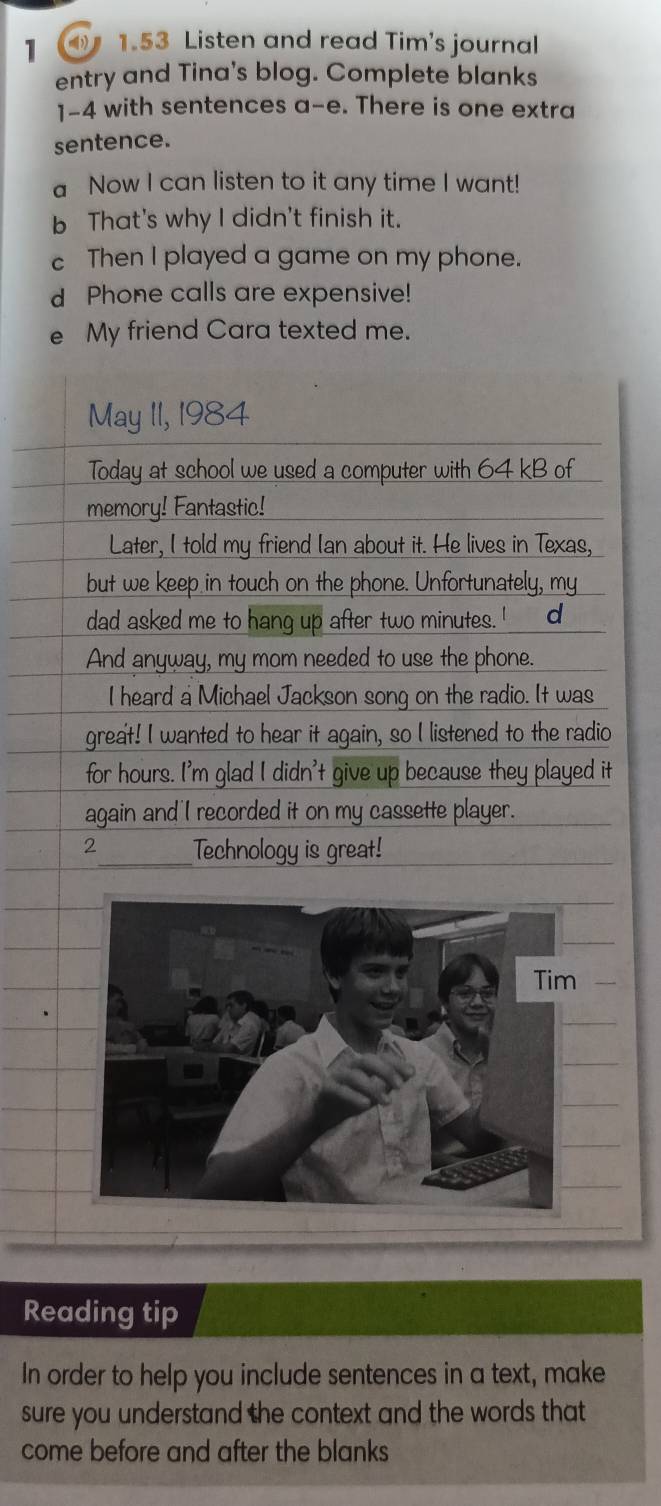 1 1.53 Listen and read Tim's journal
entry and Tina's blog. Complete blanks
1-4 with sentences a-e. There is one extra
sentence.
a Now I can listen to it any time I want!
b That's why I didn't finish it.
c Then I played a game on my phone.
d Phone calls are expensive!
e My friend Cara texted me.
May 11, 1984
Today at school we used a computer with 64 kB of
memory! Fantastic!
Later, I told my friend Ian about it. He lives in Texas,
but we keep in touch on the phone. Unfortunately, my
dad asked me to hang up after two minutes. 1 d
And anyway, my mom needed to use the phone.
I heard a Michael Jackson song on the radio. It was
great! I wanted to hear it again, so I listened to the radio
for hours. I'm glad I didn't give up because they played it
again and I recorded it on my cassette player.
2________Technology is great!
Tim
Reading tip
In order to help you include sentences in a text, make
sure you understand the context and the words that
come before and after the blanks